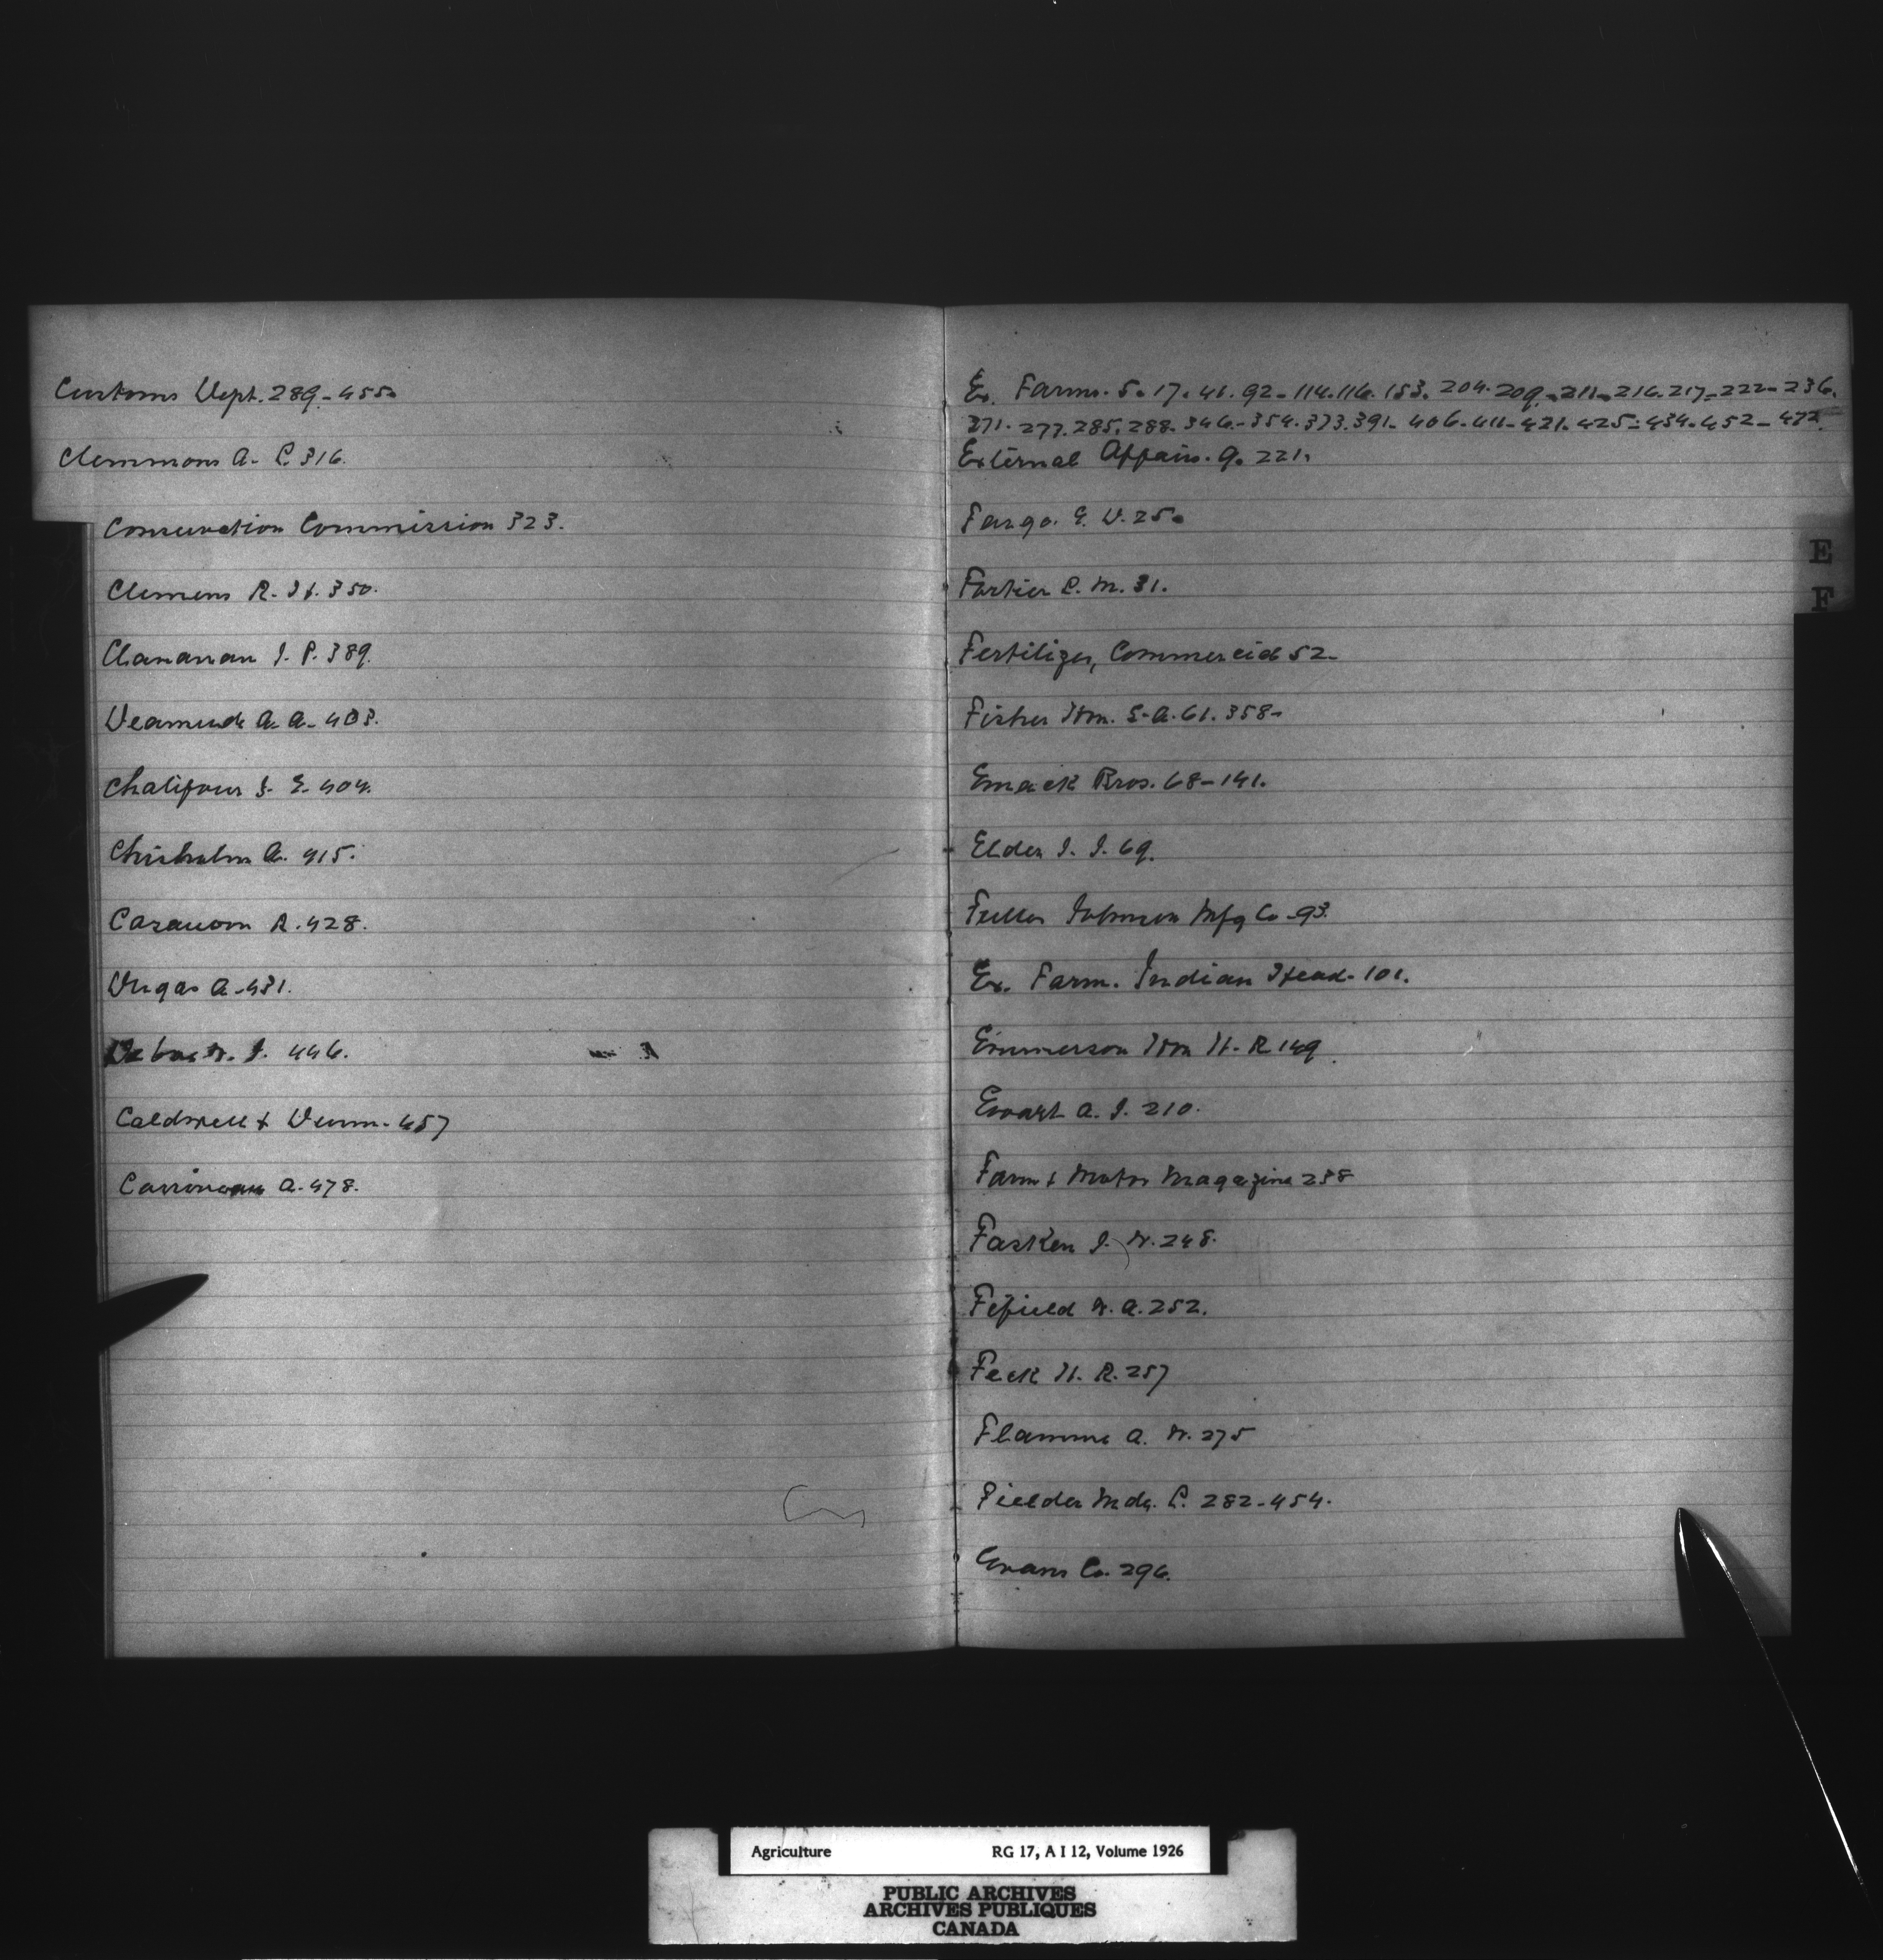 Customs Dept. 289-455.
Clemmons A. L. 316.
Conservation Commission 323.
Clemens R. H. 350.
J. P. 389.
A. A. 403.
Chalifour J. E. 404.
Chisholm A. 415.
R. 428.
Dugas A. 431.
J. 446.
Caldwell & Dunn. 457
A. 478.
Ex. Farms. 5. 17. 41. 92. 114. 116. 153. 204. 209. 211. 216. 217. 222. 236.
271. 277. 285. 288. 346. 354. 373. 391. 406. 411. 421. 425. 434. 452. 472.
External Affairs. 9. 221.
Fargo. E. D. 25.
Fortier L. M. 31.
Fertilizer, Commercial 52.
Fisher Hon. S. A. 61. 358.
Emack Bros. 68-141.
Elder J. J. 69.
Fuller Johnson Mfg Co. 93.
Ex. Farm. Indian Head. 101.
Emmerson Hon H. R. 149.
Ewart A. J. 210.
Farm & Motor Magazine 238
Fasken J. W. 248.
Fifield W. A. 252.
Feck H. R. 257
Flamme A. W. 275
Fielder Mde. L. 282-454.
Evans Co. 296.
E
F
Agriculture RG 17, A I 12, Volume 1926
PUBLIC ARCHIVES
ARCHIVES PUBLIQUES
CANADA